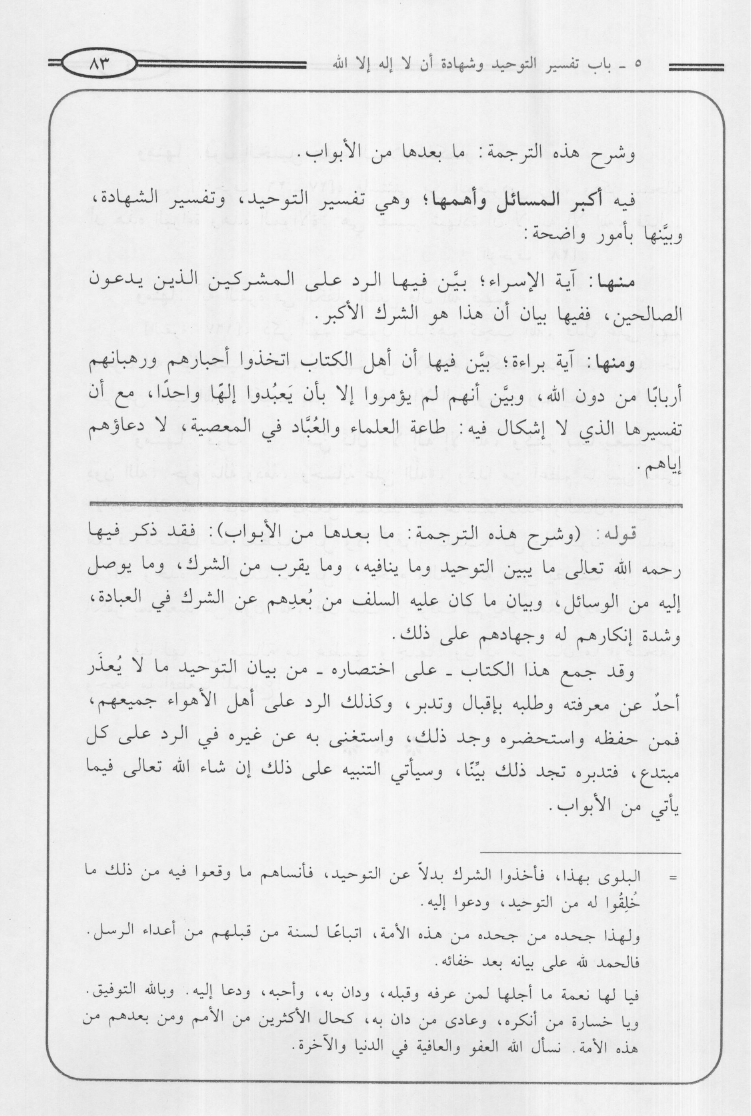 ٥ ـ باب تفسير التوحيد وشهادة أن لا إله إلا الله
٨٣
وشرح هذه الترجمة: ما بعدها من الأبواب.
فيه أكبر المسائل وأهمها؛ وهي تفسير التوحيد، وتفسير الشهادة،
وبيَّنها بأمور واضحة:
منها: آية الإسراء؛ بيَّن فيها الرد على المشركين الذين يدعون
الصالحين، ففيها بيان أن هذا هو الشرك الأكبر.
ومنها: آية براءة؛ بيَّن فيها أن أهل الكتاب اتخذوا أحبارهم ورهبانهم
أربابًا من دون الله، وبيَّن أنهم لم يؤمروا إلا بأن يَعبُدوا إلهًا واحدًا، مع أن
تفسيرها الذي لا إشكال فيه: طاعة العلماء والعُبَّاد في المعصية، لا دعاؤهم
إياهم.
قوله: (وشرح هذه الترجمة: ما بعدها من الأبواب): فقد ذكر فيها
رحمه الله تعالى ما يبين التوحيد وما ينافيه، وما يقرب من الشرك، وما يوصل
إليه من الوسائل، وبيان ما كان عليه السلف من بُعدِهم عن الشرك في العبادة،
وشدة إنكارهم له وجهادهم على ذلك.
وقد جمع هذا الكتاب ـ على اختصاره ـ من بيان التوحيد ما لا يُعذَر
أحدٌ عن معرفته وطلبه بإقبال وتدبر، وكذلك الرد على أهل الأهواء جميعهم،
فمن حفظه واستحضره وجد ذلك، واستغنى به عن غيره في الرد على كل
مبتدع، فتدبره تجد ذلك بيِّنًا، وسيأتي التنبيه على ذلك إن شاء الله تعالى فيما
يأتي من الأبواب.
= البلوى بهذا، فأخذوا الشرك بدلاً عن التوحيد، فأنساهم ما وقعوا فيه من ذلك ما
خُلِقُوا له من التوحيد، ودعوا إليه.
ولهذا جحده من جحده من هذه الأمة، اتباعًا لسنة من قبلهم من أعداء الرسل.
فالحمد لله على بيانه بعد خفائه.
فيا لها نعمة ما أجلها لمن عرفه وقبله، ودان به، وأحبه، ودعا إليه. وبالله التوفيق.
ويا خسارة من أنكره، وعادى من دان به، كحال الأكثرين من الأمم ومن بعدهم من
هذه الأمة. نسأل الله العفو والعافية في الدنيا والآخرة.